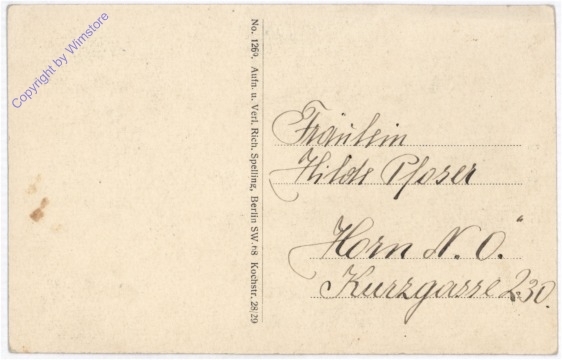 Copyright by Wimstore
No. 126a. Aufn. u. Verl. Rich. Spelling, Berlin SW.68 Kochstr. 28/29
Fräulein
Hilde Pfoser
Horn N. Ö.
Kurzgasse 230.